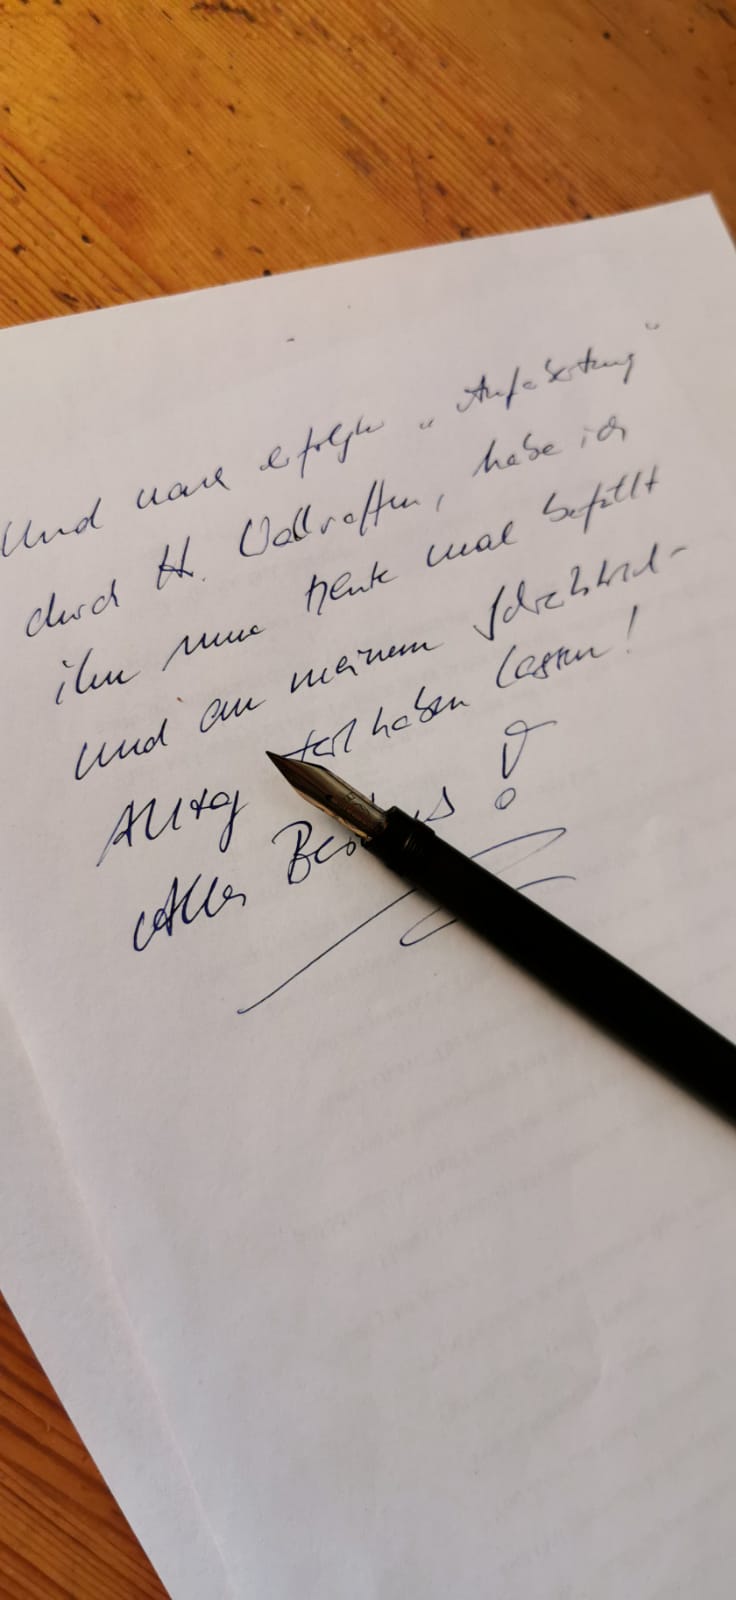 Und nach erfolgter „Aufarbeitung"
durch H. Vollrathen, habe ich
ihn nun heute mal befüllt
und an meinem Schreibtisch-
Alltag teilhaben lassen!
Alles Bestens!